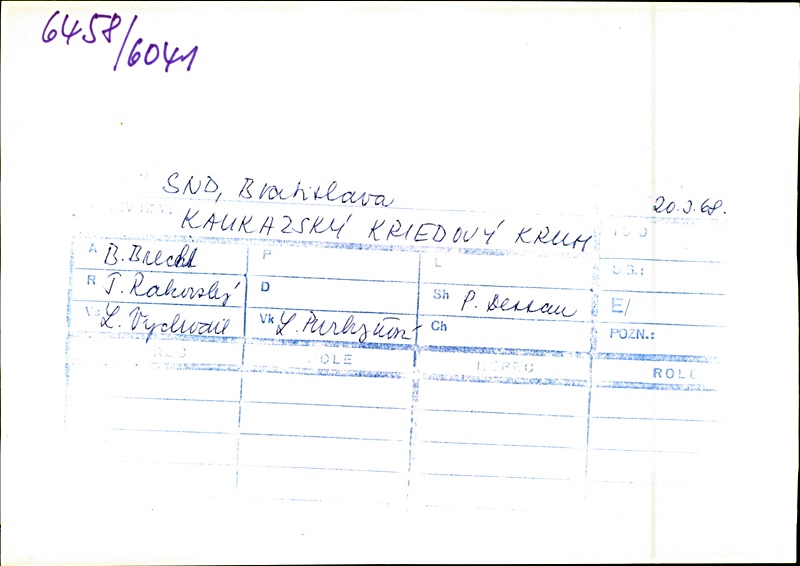 6458/6041
SND, Bratislava 20.3.68.
KAUKAZSKÝ KRIEDOVÝ KRUH
A B. Brecht P L
R T. Rakovský D Sh P. Dessau E/
Vs L. Vychodil Vk L. Purkyňová Ch POZN.:
ROLE